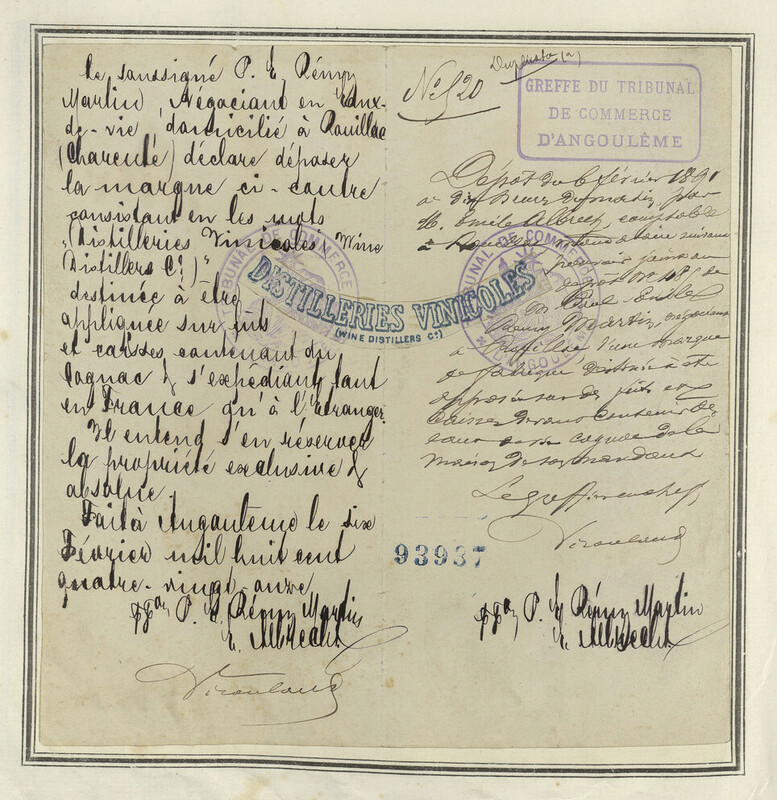 Le soussigné P. E. Rémy
Martin, Négociant en Eaux-
de-vie, domicilié à Rouillac
(Charente) déclare déposer
la marque ci-contre
consistant en les mots
"(Distilleries Vinicoles (Wine
Distillers Co.)"
destinée à être
appliquée sur fûts
et caisses contenant du
Cognac & s'expédiant tant
en France qu'à l'étranger.
Il entend s'en réserver
la propriété exclusive &
absolue.
Fait à Angoulême le six
Février mil huit cent
quatre-vingt-onze
ppon P. E. Rémy Martin
E. Albrecht
Viroulaud
TRIBUNAL DE COMMERCE
DISTILLERIES VINICOLES
(WINE DISTILLERS Co.)
Duplicata (2)
No. 520
GREFFE DU TRIBUNAL
DE COMMERCE
D'ANGOULÊME
Dépôt du 6 février 1891
à dix heures du matin par
M. Emile Albrecht, comptable
à mandataire suivant
pouvoir joint au
dépôt No. de
M. Paul Emile
Remy Martin, négociant
à Rouillac d'une marque
de fabrique destinée à être
apposée sur des fûts et
caisses devant contenir des
eaux de vie cognac de la
maison de son mandant
Le greffier en chef
Viroulaud
TRIBUNAL DE COMMERCE
D'ANGOULÊME
93937
ppon P. E. Rémy Martin
E. Albrecht